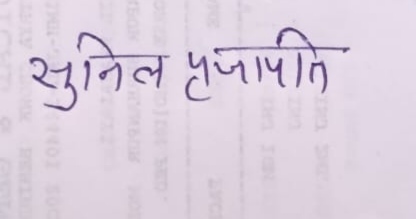 सुनिल प्रजापति